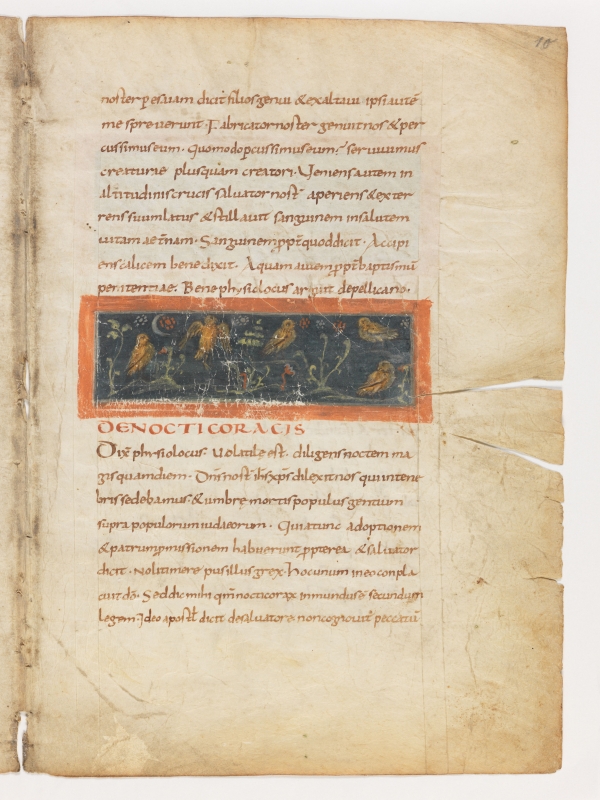 10
noster p esaiam dicit filios genui & exaltaui ipsi autē
me spreuerunt. Fabricator noster genuit nos & per
cussimus eum. Quomodo pcussimus eum? seruiuimus
creaturae plusquam creatori. Veniens autem in
altitudinis crucis saluator nost aperiens & exter
rens suum latus & stillauit sanguinem in salutem
uitam aet̄nam. Sanguinem ppt quod dicit. Accipi
ens calicem benedixit. Aquam autem ppt baptismū
penitentiae. Bene physiolocus arguit de pellicano.
DENOCTICORACIS
Dix̄ physiolocus. Uolatile est. diligens noctem ma
gis quam diem. Dn̄s nost ih̄s xp̄s dilexit nos qui in tene
bris sedebamus & umbre mortis populus gentium
supra populorum iudaeorum. Qui a tunc adoptionem
& patrum pmissionem habuerunt ppterea & saluator
dicit. Nolitimere pusillus grex. hoc unum in eo conpla
cuit dō. Sed dic mihi qm̄ nocticorax inmundus ē secundum
legem. Ideo apostl dicit de saluatore non cognouit peccatū